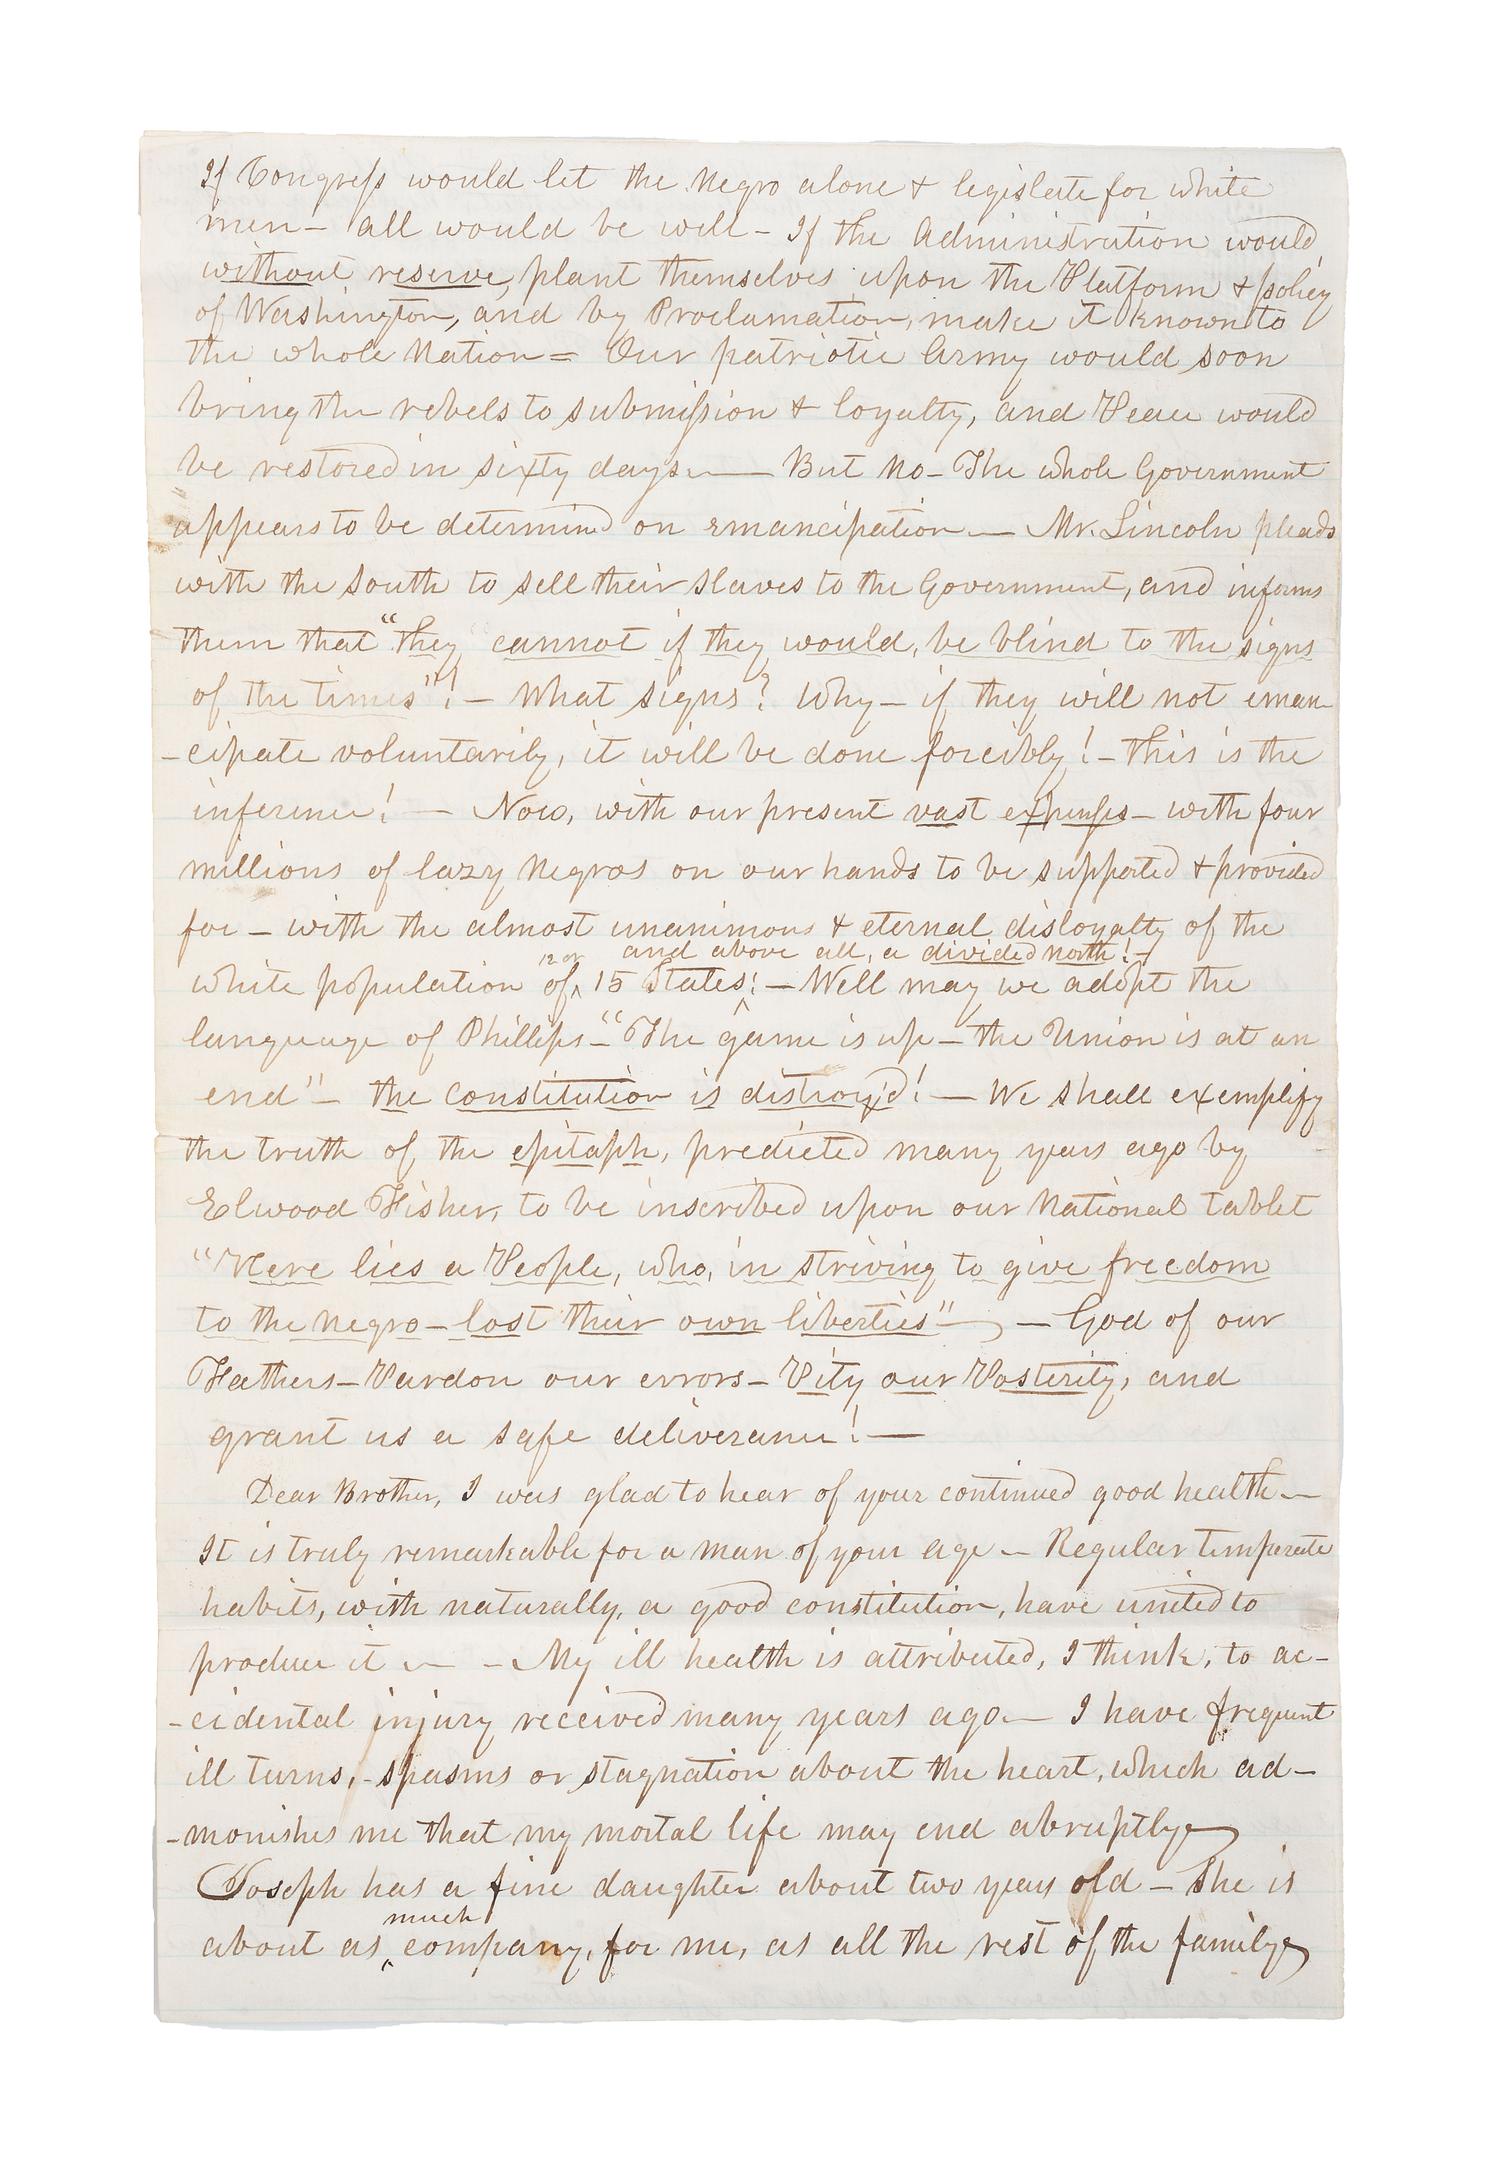 If Congress would let the Negro alone & legislate for white
men - all would be well - If the Administration would,
without reserve, plant themselves upon the Platform & policy
of Washington, and by Proclamation, make it known to
the whole Nation = Our patriotic Army would soon
bring the rebels to submission & loyalty, and Peace would
be restored in sixty days. — But no - The whole Government
appears to be determined on emancipation — Mr. Lincoln pleads
with the South to sell their slaves to the Government, and informs
them that "they cannot if they would, be blind to the signs
of the times"! - What signs? Why - if they will not eman-
-cipate voluntarily, it will be done forcibly! - This is the
inference! — Now, with our present vast expenses - with four
millions of lazy Negros on our hands to be supported & provided
for - with the almost unanimous & eternal disloyalty of the
12 or and above all, a divided north! -
white population of 15 States! - Well may we adopt the
language of Phillips - "The game is up - the Union is at an
end" - the constitution is distroy'd! — We shall exemplify
the truth of the epitaph, predicted many years ago by
Elwood Fisher, to be inscribed upon our National tablet
"Here lies a People, who, in striving to give freedom
to the negro - lost their own liberties" — God of our
Fathers - Pardon our errors - Pity our Posterity, and
grant us a safe deliverance! —
Dear Brother, I was glad to hear of your continued good health —
It is truly remarkable for a man of your age — Regular temperate
habits, with naturally, a good constitution, have united to
produce it — - My ill health is attributed, I think, to ac-
-cidental injury received many years ago — I have frequent
ill turns, - spasms or stagnation about the heart, which ad-
-monishes me that my mortal life may end abruptly
Joseph has a fine daughter about two years old - She is
much
about as company, for me, as all the rest of the family